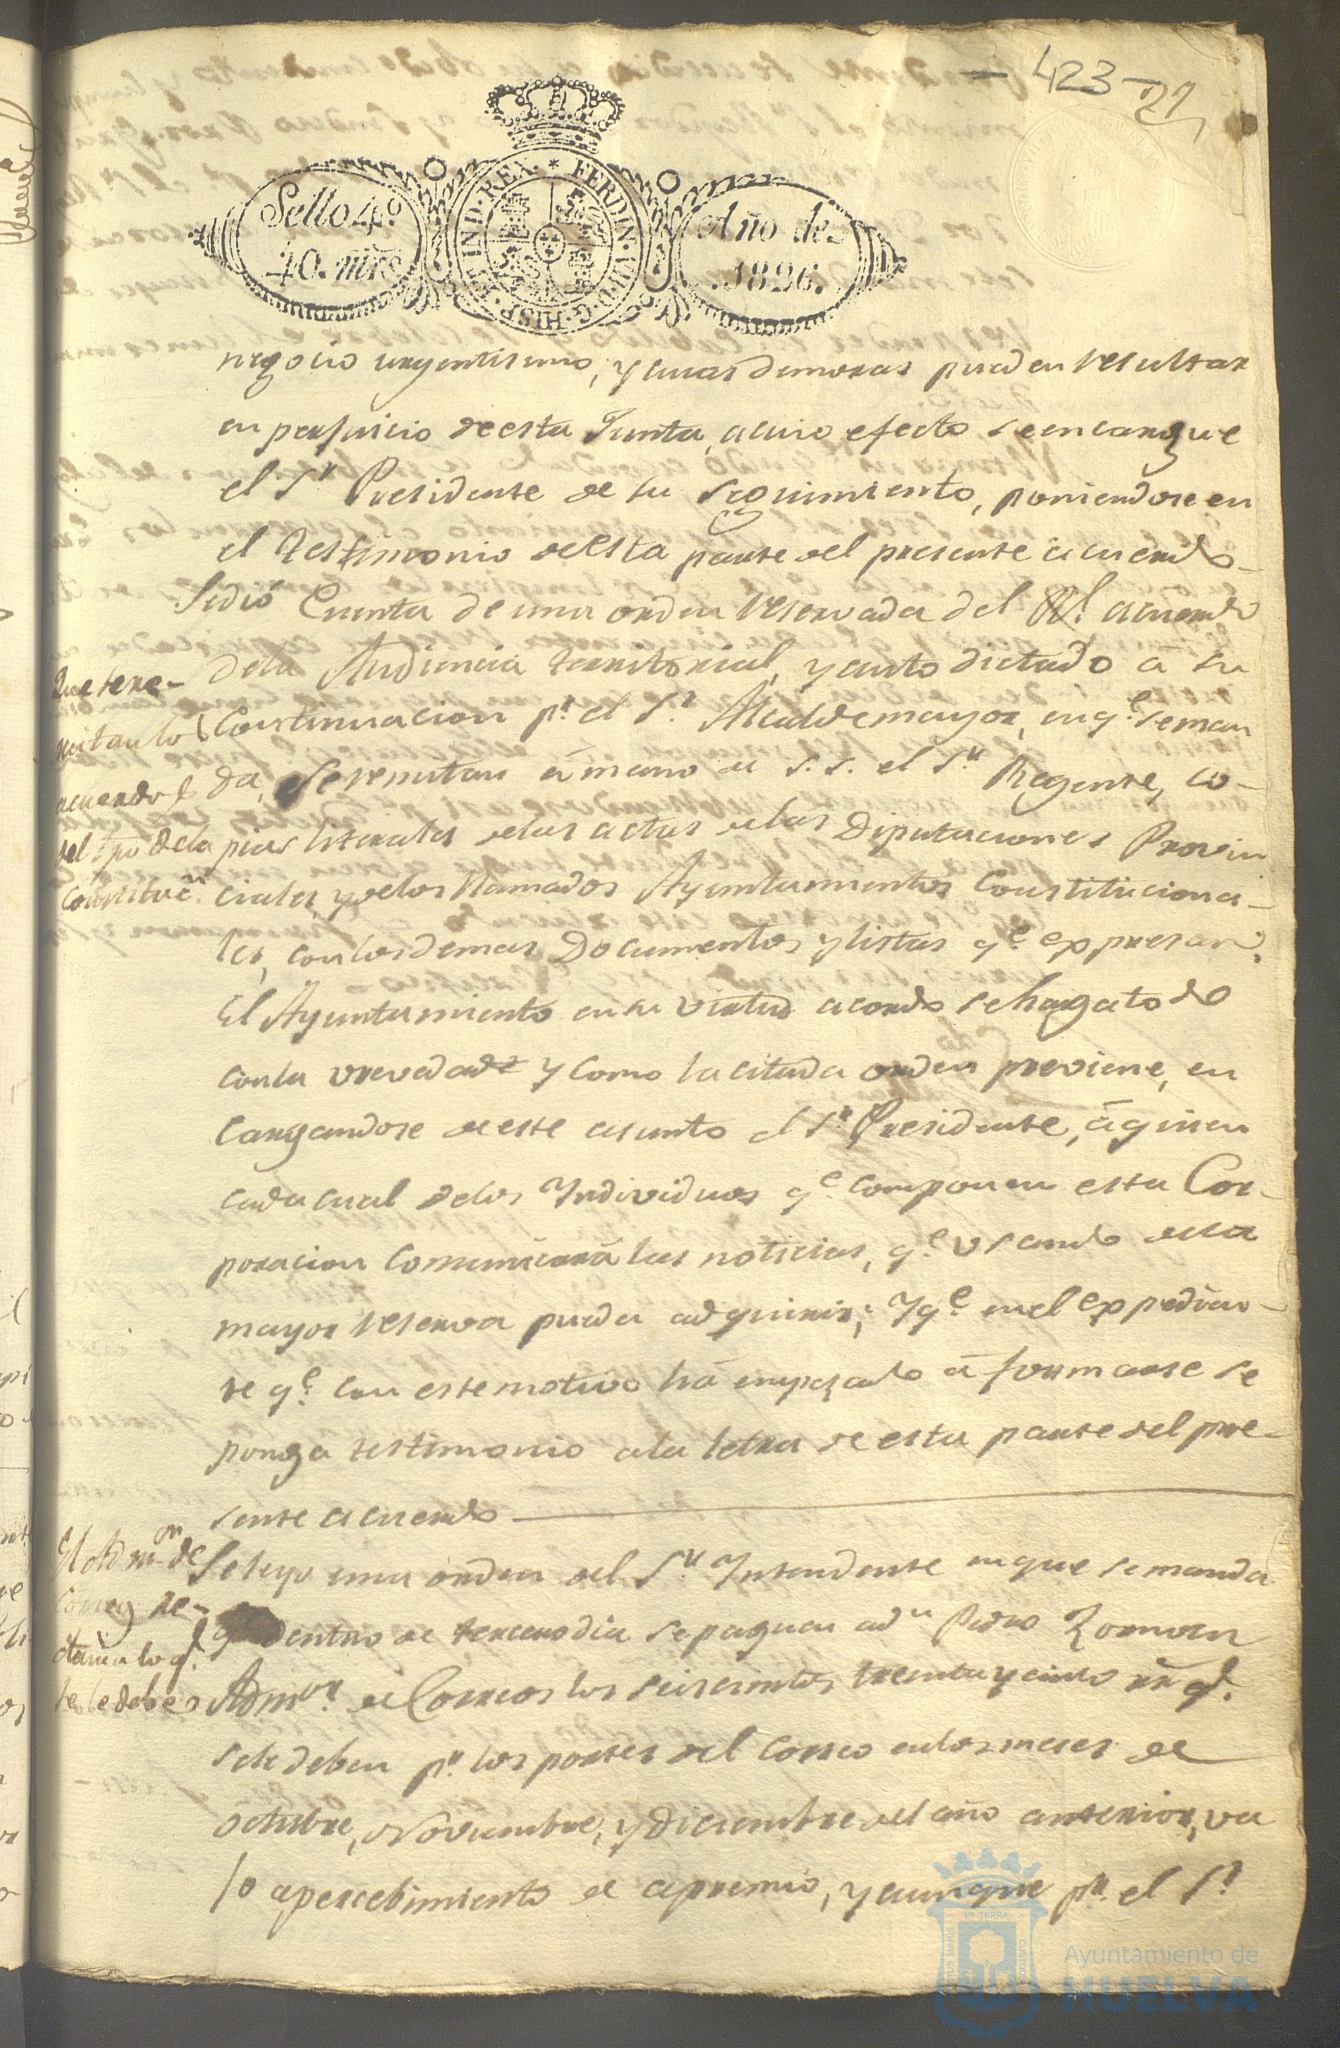 - 423 -
21
Sello 4º
40. mrs
HISP. ET IND. REX. * FERDIN. VII. D. G.
Año de
.1826.
negocio urgentisimo, y cuias demoras pueden resultar
en perjuicio de esta Junta, a cuio efecto se encargue
el Sr Presidente de su seguimiento, poniendose en
el testimonio de esta parte del presente acuerdo
Se dió Cuenta de una orden reservada del Rl. acuerdo
dela Audiencia territorial, y auto dictado á su
continuacion pr. el Sr. Alcalde mayor, en qe. se man
da, se remitan á mano de S. S. el Sr Regente, co-
pias literales delas actas delas Diputaciones Provin
ciales, y delos llamados Ayuntamientos Constituciona-
les, con los demas Documentos y listas qe. expresan.
El Ayuntamiento en su virtud acordo se haga todo
con la vrevedad y como la citada orden previene, en
cargandose de este asunto el Sr. Presidente, á quien
cada cual delos Yndividuos qe. componen esta Cor-
poracion comunicará las noticias, qe. usando dela
mayor reserva pueda adquirir; Y qe. en el expedien-
te qe. con este motivo há empezado á formarse se
ponga testimonio ala letra de esta parte del pre-
sente acuerdo
Que se re-
mitan los
acuerdos
del tpo dela
ConstituCn.
Se leyo una orden del Sr. Yntendente en que se manda
dentro de tercero dia se paguen a Dn Pedro Romon
Admor. de Correos los seiscientos treinta y cinco rr q.
se le deben pr. los portes del Correo en los meses de
octubre, Noviembre, y Diciembre del año anterior, va
jo apercibimiento de apremio, y aunque pr. el Sr.
El Admon de
Correos re-
clama lo q.
se le debe
Ayuntamiento de
HUELVA